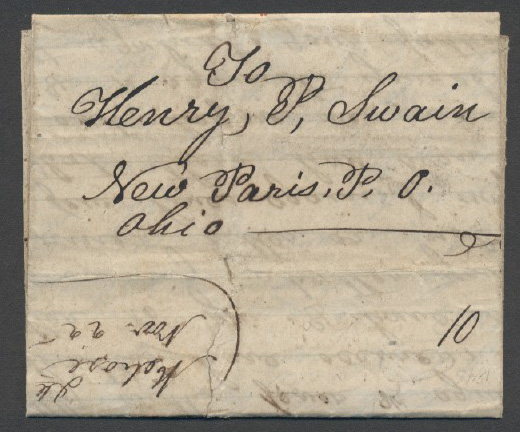 To
Henry, P, Swain
New Paris, P. O.
Ohio
10
Melrose
Nov 22